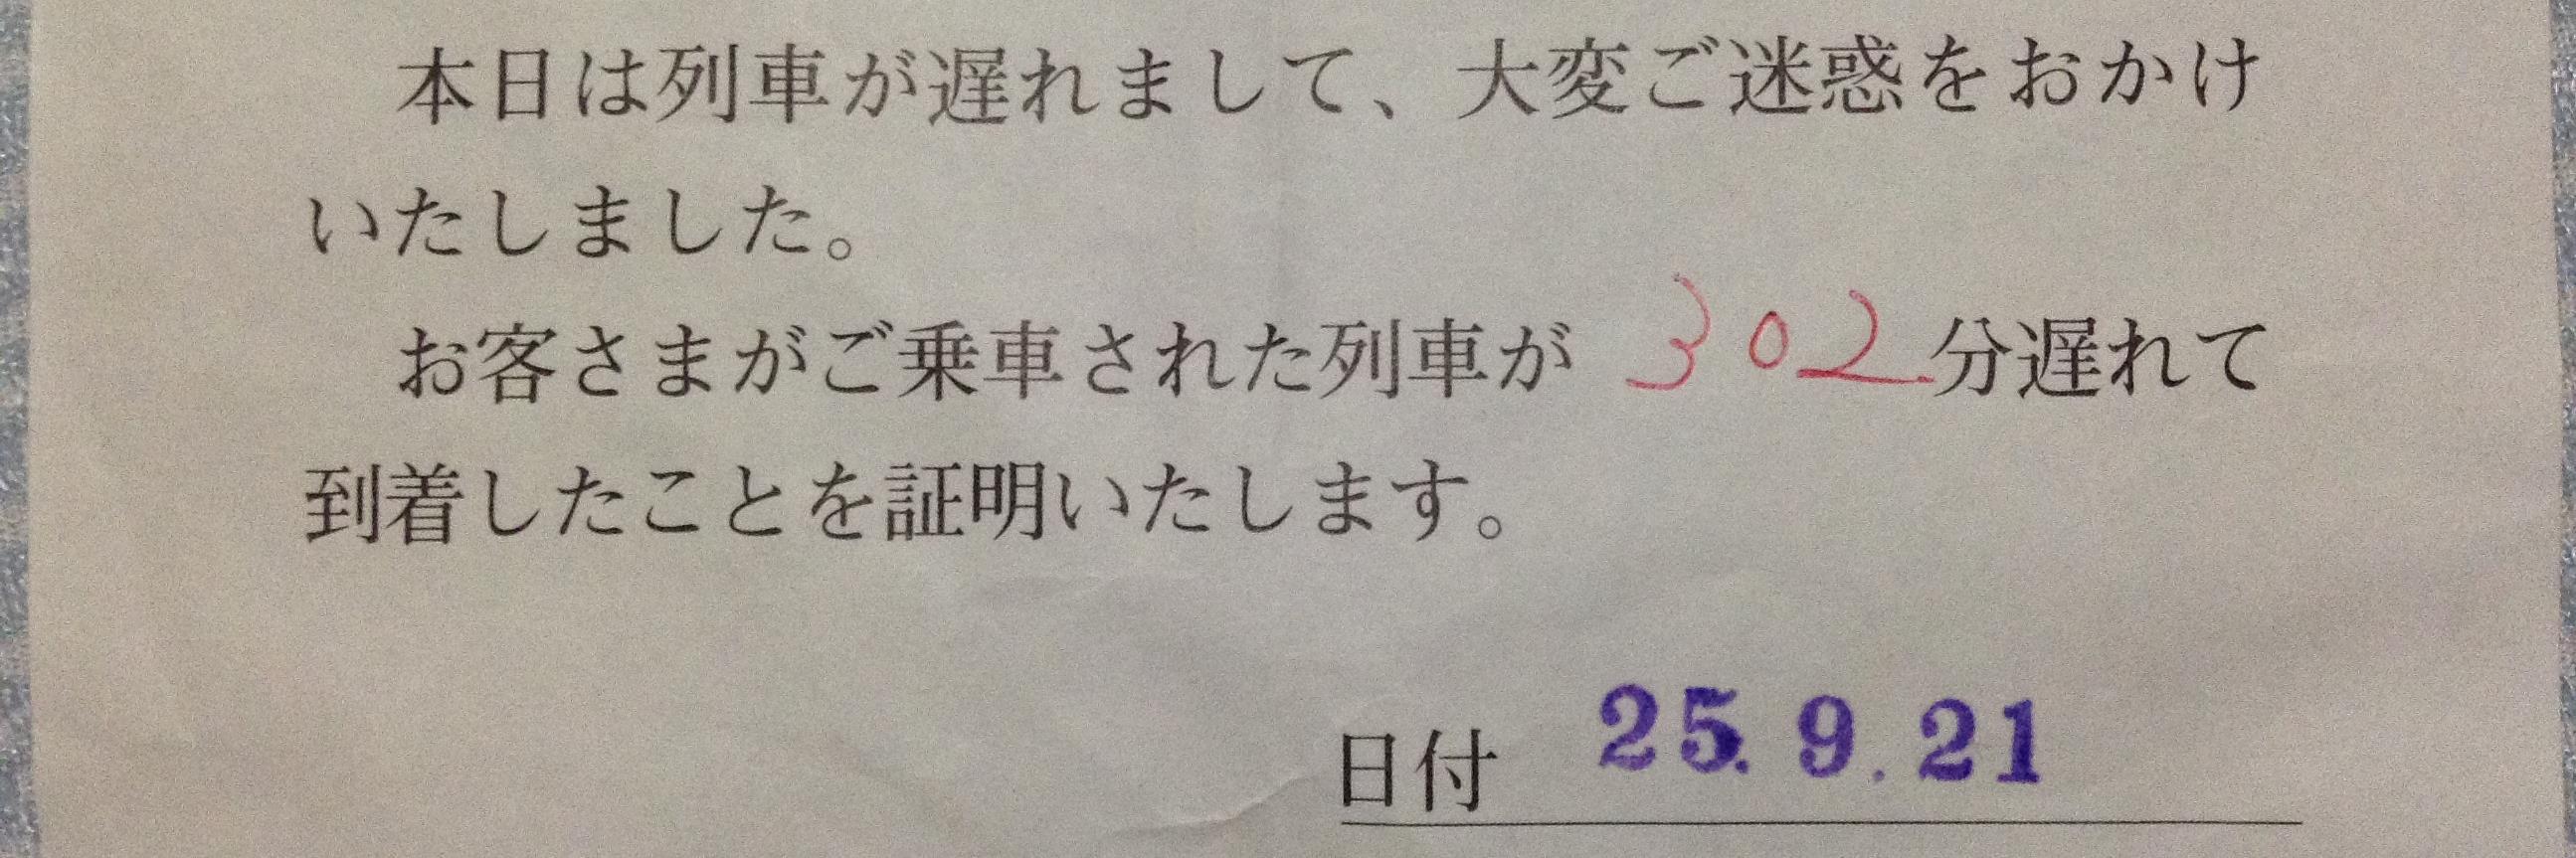 本日は列車が遅れまして、大変ご迷惑をおかけ
いたしました。
お客さまがご乗車された列車が 302 分遅れて
到着したことを証明いたします。
日付 25.9.21